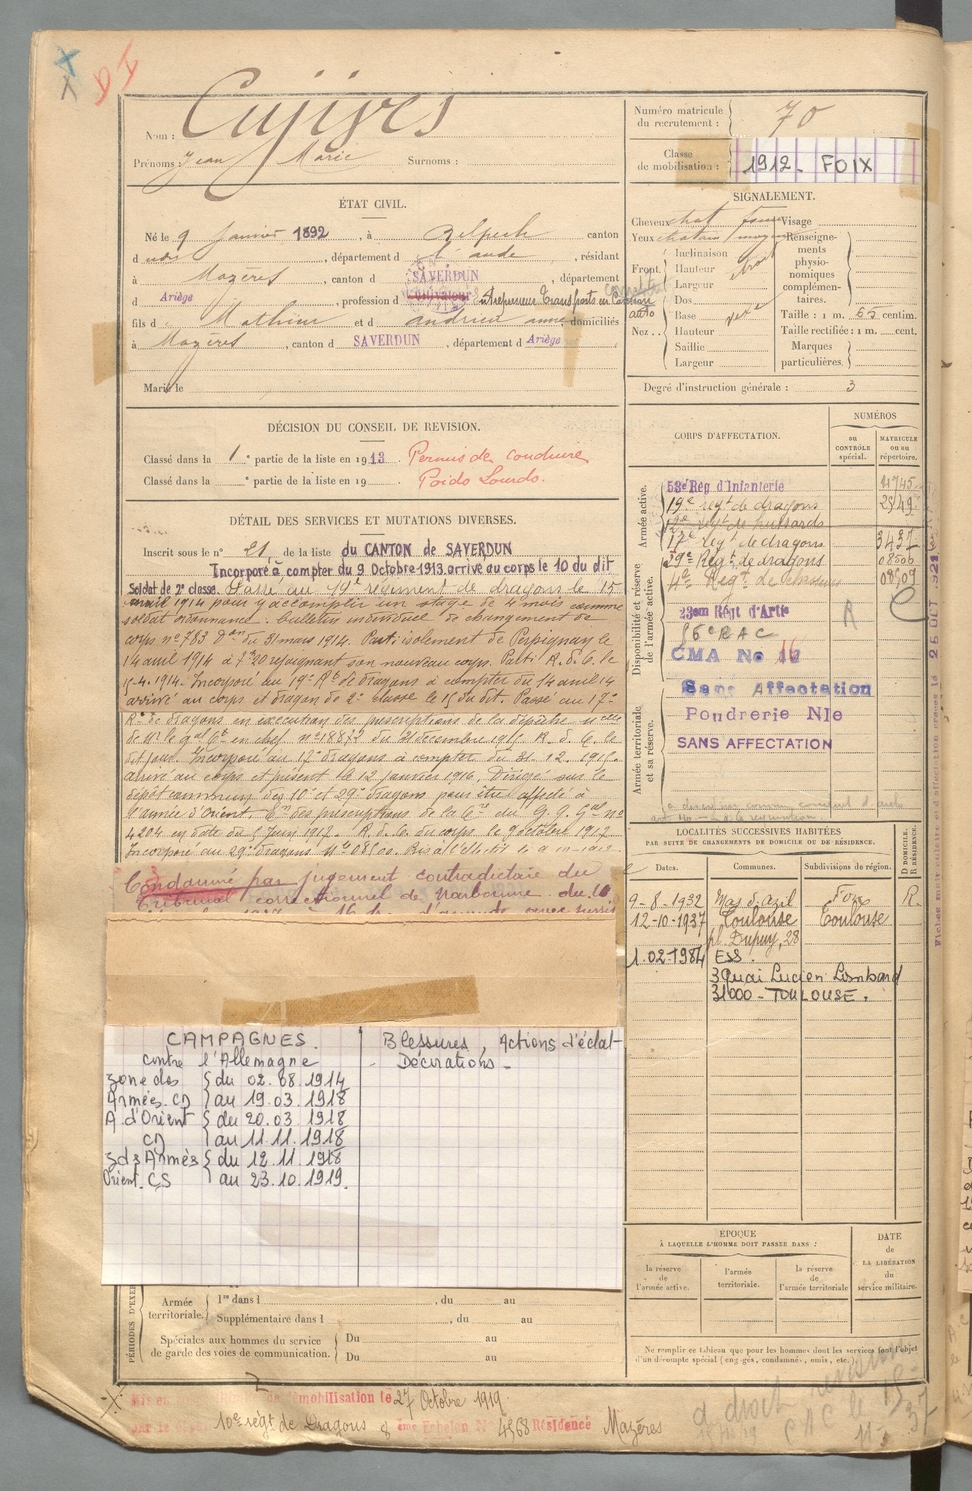 Nom : Cujives
Prénoms : Jean Marie Surnoms :
Numéro matricule du recrutement : 70
Classe de mobilisation : 1912 - FOIX
ÉTAT CIVIL.
Né le 9 Janvier 1892, à Belpech canton
d , département d l'aude, résidant
à Mazères, canton d SAVERDUN, département
d Ariège, profession d cultivateur Entrepreneur Transports en Commun
fils d Mathieu et d andrieu anne domiciliés
à Mazères, canton d SAVERDUN, département d Ariège
Marié le
SIGNALEMENT.
Cheveux chat Visage
Yeux chatain Renseignements physionomiques complémentaires.
Front. Inclinaison
Hauteur étroit
Largeur
Nez. Dos
Base
Hauteur
Saillie
Largeur
Taille : 1 m. 65 centim.
Taille rectifiée : 1 m. cent.
Marques particulières.
Degré d'instruction générale : 3
DÉCISION DU CONSEIL DE REVISION.
Classé dans la 1e partie de la liste en 1913. Permis de conduire
Classé dans la e partie de la liste en 19 . Poids Lourds.
DÉTAIL DES SERVICES ET MUTATIONS DIVERSES.
Inscrit sous le n° 21 de la liste du CANTON de SAVERDUN
Incorporé à compter du 9 Octobre 1913. arrivé au corps le 10 du dit
Soldat de 2e classe. Passé au 19e régiment de dragons le 15
avril 1914 pour y accomplir un stage de 4 mois comme
soldat ordonnance. bulletin individuel de changement de
corps n° 783 du 31 mars 1914. Parti isolément de Perpignan le
14 avril 1914 à 7h20 rejoignant son nouveau corps. Parti R. d. C. le
15-4-1914. Incorporé au 19e Rt de dragons à compter du 14 avril 14
arrivé au corps et dragon de 2e classe le 15 du dit. Passé au 17e
Rt de dragons en exécution des prescriptions de la dépêche
de Mr le gal Ct en chef n° 18873 du 21 décembre 1915. R. d. C. le
dit jour. Incorporé au 17e dragons à compter du 31.12.1915.
arrivé au corps et présent le 12 janvier 1916. Dirigé sur le
dépôt commun des 10e et 29e dragons pour être affecté à
l'armée d'Orient. En des prescriptions de la du G. Q. Gal n°
4204 en date du 5 Juin 1917. R. d. C. du corps le 9 octobre 1917
Incorporé au 29e dragons n° 08500.
Condamné par jugement contradictoire du
Tribunal correctionnel de Narbonne du 16
CORPS D'AFFECTATION.
NUMÉROS
au CONTRÔLE spécial.
MATRICULE ou au répertoire.
Armée active.
53e Rég d'Infanterie 4745
19e regt de dragons 2549
12e regt de hussards
17e regt de dragons 3437
29e Regt de dragons 08506
4e Regt de Chasseurs 08509
Disponibilité et réserve de l'armée active.
23em Régt d'Artie
56e RAC
CMA No 16
Sans Affectation
Armée territoriale et sa réserve.
Poudrerie Nle
SANS AFFECTATION
LOCALITÉS SUCCESSIVES HABITÉES
PAR SUITE DE CHANGEMENTS DE DOMICILE OU DE RÉSIDENCE.
Dates. Communes. Subdivisions de région. D DOMICILE. R RÉSIDENCE.
9-8-1932 Mas d'azil Foix R.
12-10-1937 Toulouse Toulouse
pl. Dupuy, 28
1.02-1984 ESS.
3 Quai Lucien Lombard
31000 - TOULOUSE.
CAMPAGNES.
contre l'Allemagne
zone des { du 02.08.1914
Armées CD } au 19.03.1918
A d'Orient { du 20.03 1918
CD } au 11.11.1918
Armés { du 12.11 1918
Orient. CS } au 23.10.1919.
Blessures, Actions d'éclat
Décorations -
ÉPOQUE
À LAQUELLE L'HOMME DOIT PASSER DANS :
la réserve de l'armée active.
l'armée territoriale.
la réserve de l'armée territoriale
DATE de LA LIBÉRATION du service militaire.
Armée territoriale. 1re dans l , du au
Supplémentaire dans l , du au
Spéciales aux hommes du service de garde des voies de communication. Du au
Du au
Ne remplir ce tableau que pour les hommes dont les services font l'objet d'un décompte spécial (engagés, condamnés, omis, etc.)
démobilisation le 27 Octobre 1919.
10e régt de Dragons 8 ème Echelon N° 4568 Résidence Mazères